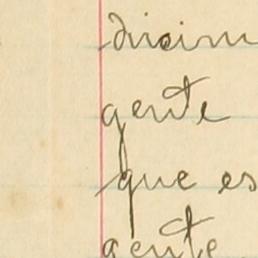 gente
que es
gente